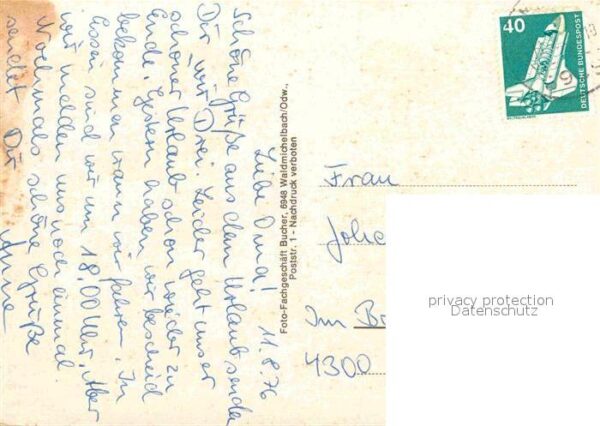 11.8.76
Liebe Oma!
Schöne Grüße aus dem Urlaub sendet
Dir wir Drei. Leider geht unser
schöner Urlaub schon wieder zu
Ende. Gestern haben wir bescheid
bekommen wann wir fahren. In
Essen sind wir um 18.00 Uhr. Aber
wir melden uns noch einmal
Nochmals schöne Grüße
sendet Dir Anne
Foto-Fachgeschäft Bucher, 6948 Waldmichelbach/Odw.,
Poststr. 1 - Nachdruck verboten
40
DEUTSCHE BUNDESPOST
Frau
Im
4300
privacy protection
Datenschutz